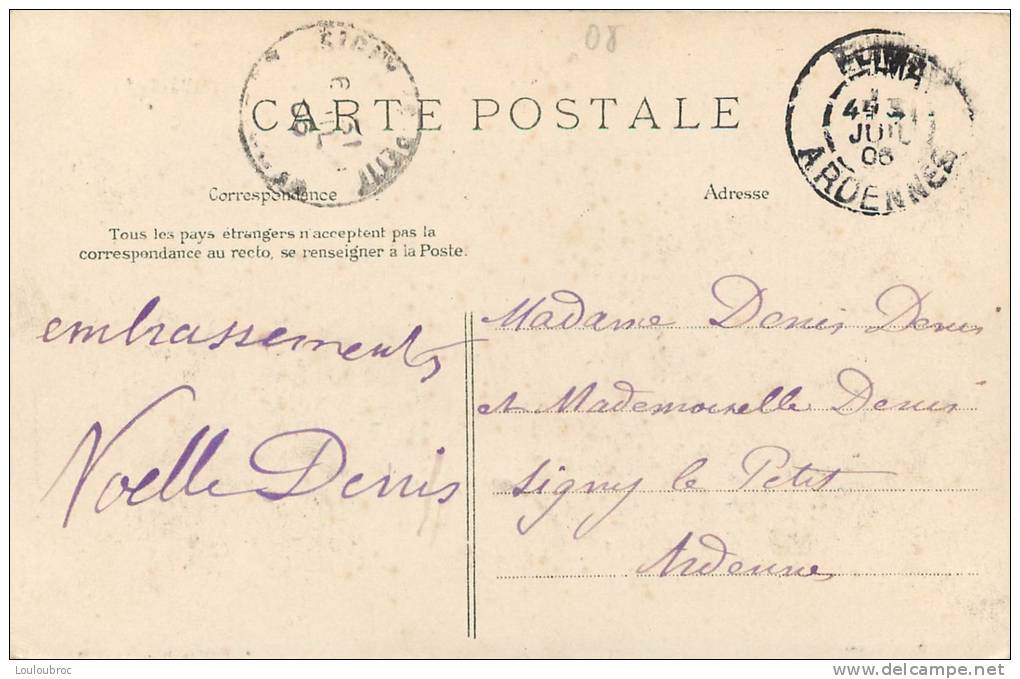 08
CARTE POSTALE
JUIL
06
ARDENNES
Correspondance
Adresse
Tous les pays étrangers n'acceptent pas la
correspondance au recto, se renseigner à la Poste.
embrassements
Noelle Denis
Madame Denis Denis
et Mademoiselle Denis
Signy le Petit
Ardennes
Louloubroc
www.delcampe.net